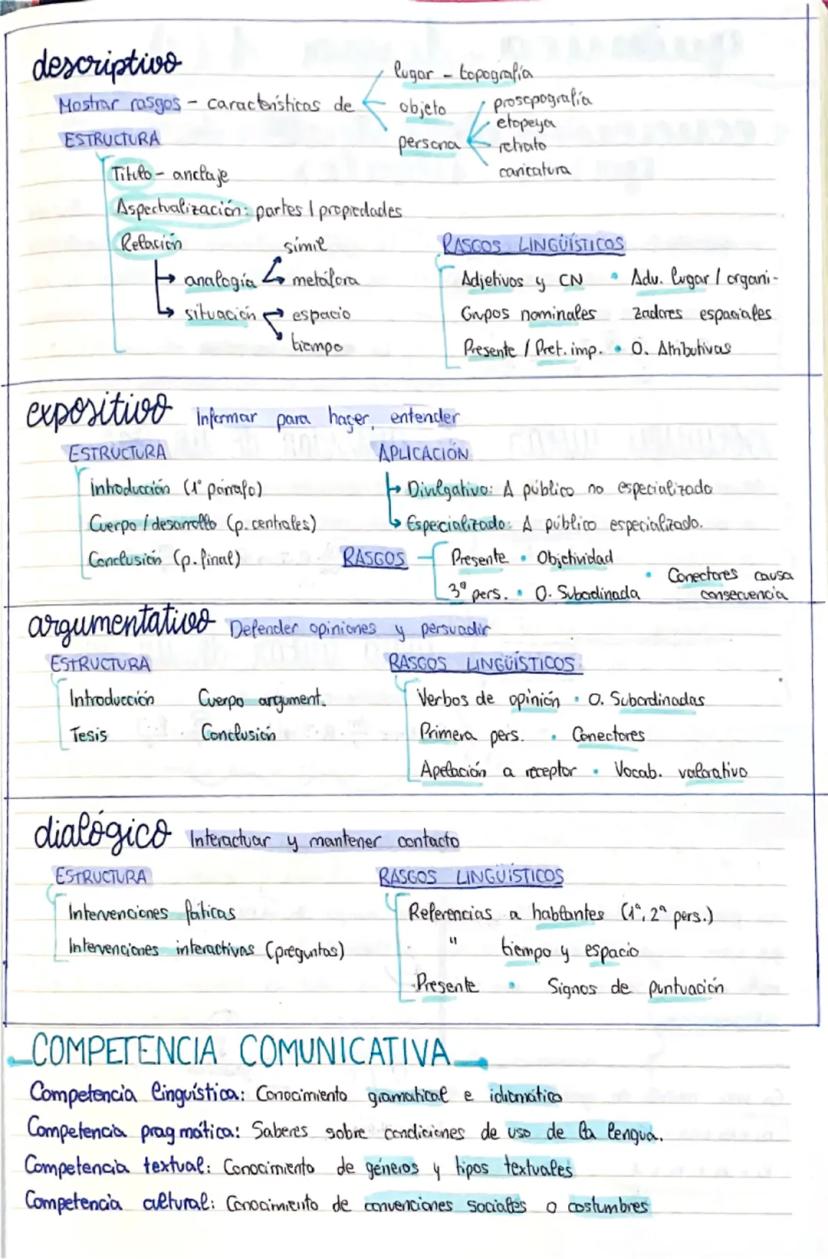 descriptivo
Mostrar rasgos - características de
lugar - topografía
objeto
persona
prosopografía
etopeya
retrato
caricatura
ESTRUCTURA
Título - anclaje
Aspectualización: partes / propiedades
Relación
analogía
símil
metáfora
situación
espacio
tiempo
RASGOS LINGÜÍSTICOS
Adjetivos y CN • Adv. lugar / organi-
Grupos nominales zadores espaciales
Presente / Pret. imp. • O. Atributivas
expositivo Informar para hacer entender
ESTRUCTURA
introducción (1º párrafo)
Cuerpo / desarrollo (p. centrales)
Conclusión (p. final)
APLICACIÓN
Divulgativo: A público no especializado
Especializado: A público especializado.
RASGOS
Presente • Objetividad
3ª pers. • O. Subordinada
• Conectores causa
consecuencia
argumentativo Defender opiniones y persuadir
ESTRUCTURA
Introducción Cuerpo argument.
Tesis Conclusión
RASGOS LINGÜÍSTICOS
Verbos de opinión • O. Subordinadas
Primera pers. • Conectores
Apelación a receptor • Vocab. valorativo
dialógico Interactuar y mantener contacto
ESTRUCTURA
Intervenciones fáticas
Intervenciones interactivas (preguntas)
RASGOS LINGÜÍSTICOS
Referencias a hablantes (1ª, 2ª pers.)
" tiempo y espacio
Presente • Signos de puntuación
COMPETENCIA COMUNICATIVA
Competencia lingüística: Conocimiento gramatical e idiomático
Competencia pragmática: Saberes sobre condiciones de uso de la lengua.
Competencia textual: Conocimiento de géneros y tipos textuales
Competencia cultural: Conocimiento de convenciones sociales o costumbres